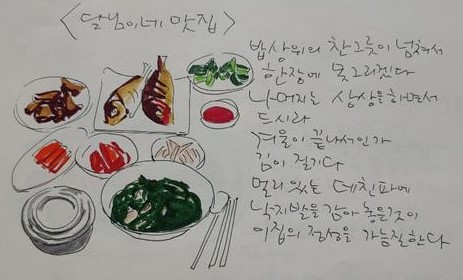 <달님이네 맛집>
밥상위의 찬그릇이 넘쳐서
한장에 못그리겠다
나머지는 상상을하면서
드시라
겨울이 끝나서인가
김이 질기다
멀리 있는 데친파에
낙지발을 감아 놓은것이
이집의 정성을 가늠질한다